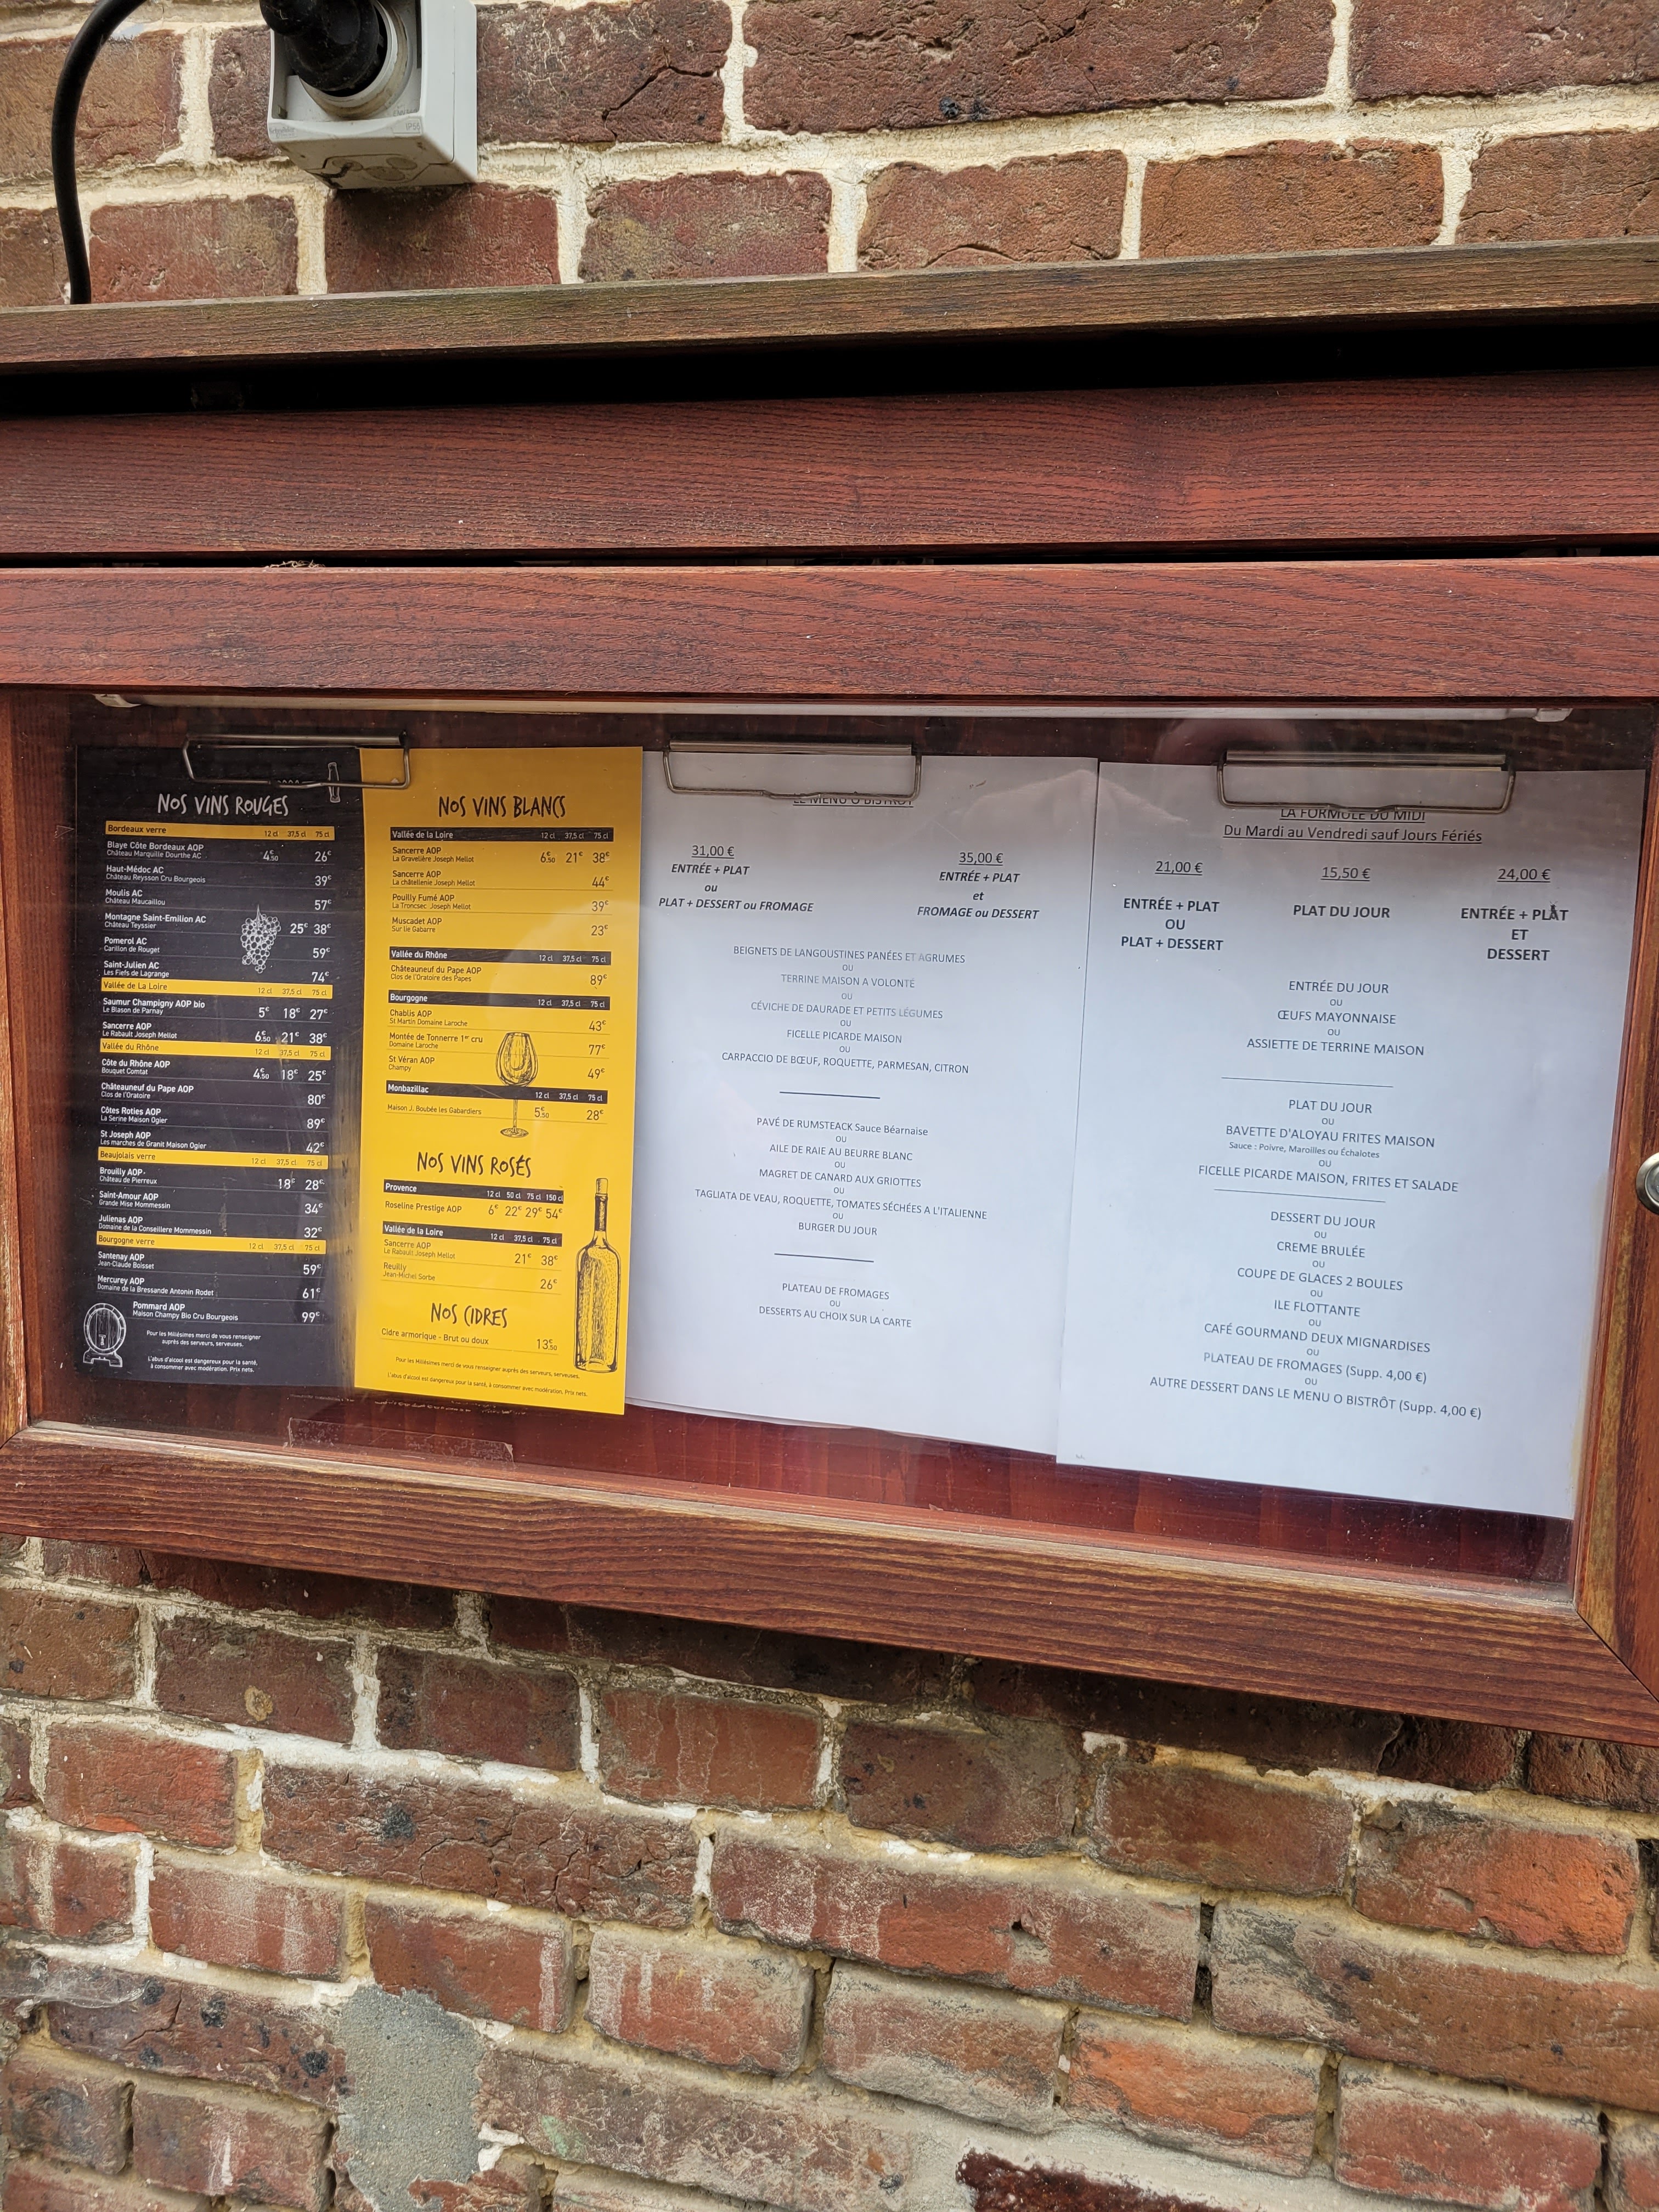 NOS VINS ROUGES
Bordeaux verre 12 cl 37,5 cl 75 cl
Blaye Côte Bordeaux AOP
Château Marquille Dourthe AC 4€50 26€
Haut-Médoc AC
Château Reysson Cru Bourgeois 39€
Moulis AC
Château Maucaillou 57€
Montagne Saint-Emilion AC
Château Teyssier 25€ 38€
Pomerol AC
Carillon de Rouget 59€
Saint-Julien AC
Les Fiefs de Lagrange 74€
Vallée de La Loire 12 cl 37,5 cl 75 cl
Saumur Champigny AOP bio
Le Blason de Parnay 5€ 18€ 27€
Sancerre AOP
Le Rabault Joseph Mellot 6€50 21€ 38€
Vallée du Rhône 12 cl 37,5 cl 75 cl
Côte du Rhône AOP
Bouquet Comtat 4€50 18€ 25€
Châteauneuf du Pape AOP
Clos de l'Oratoire 80€
Côtes Roties AOP
La Serine Maison Ogier 89€
St Joseph AOP
Les marches de Granit Maison Ogier 42€
Beaujolais verre 12 cl 37,5 cl 75 cl
Brouilly AOP
Château de Pierreux 18€ 28€
Saint-Amour AOP
Grande Mise Mommessin 34€
Julienas AOP
Domaine de la Conseillere Mommessin 32€
Bourgogne verre 12 cl 37,5 cl 75 cl
Santenay AOP
Jean-Claude Boisset 59€
Mercurey AOP
Domaine de la Bressande Antonin Rodet 61€
Pommard AOP
Maison Champy Bio Cru Bourgeois 99€
Pour les Millésimes merci de vous renseigner
auprès des serveurs, serveuses.
L'abus d'alcool est dangereux pour la santé,
à consommer avec modération. Prix nets.
NOS VINS BLANCS
Vallée de la Loire 12 cl 37,5 cl 75 cl
Sancerre AOP
La Gravelière Joseph Mellot 6€50 21€ 38€
Sancerre AOP
La châtellenie Joseph Mellot 44€
Pouilly Fumé AOP
La Troncsec Joseph Mellot 39€
Muscadet AOP
Sur lie Gabarre 23€
Vallée du Rhône 12 cl 37,5 cl 75 cl
Châteauneuf du Pape AOP
Clos de l'Oratoire des Papes 89€
Bourgogne 12 cl 37,5 cl 75 cl
Chablis AOP
St Martin Domaine Laroche 43€
Montée de Tonnerre 1er cru
Domaine Laroche 77€
St Véran AOP
Champy 49€
Monbazillac 12 cl 37,5 cl 75 cl
Maison J. Boubée les Gabardiers 5€50 28€
NOS VINS ROSÉS
Provence 12 cl 50 cl 75 cl 150 cl
Roseline Prestige AOP 6€ 22€ 29€ 54€
Vallée de la Loire 12 cl 37,5 cl 75 cl
Sancerre AOP
Le Rabault Joseph Mellot 21€ 38€
Reuilly
Jean-Michel Sorbe 26€
NOS CIDRES
Cidre armorique - Brut ou doux 13€50
Pour les Millésimes merci de vous renseigner auprès des serveurs, serveuses.
L'abus d'alcool est dangereux pour la santé, à consommer avec modération. Prix nets.
LE MENU O BISTROT
31,00 € 35,00 €
ENTRÉE + PLAT ENTRÉE + PLAT
ou et
PLAT + DESSERT ou FROMAGE FROMAGE ou DESSERT
BEIGNETS DE LANGOUSTINES PANÉES ET AGRUMES
OU
TERRINE MAISON A VOLONTÉ
OU
CÉVICHE DE DAURADE ET PETITS LÉGUMES
OU
FICELLE PICARDE MAISON
OU
CARPACCIO DE BŒUF, ROQUETTE, PARMESAN, CITRON
PAVÉ DE RUMSTEACK Sauce Béarnaise
OU
AILE DE RAIE AU BEURRE BLANC
OU
MAGRET DE CANARD AUX GRIOTTES
OU
TAGLIATA DE VEAU, ROQUETTE, TOMATES SÉCHÉES A L'ITALIENNE
OU
BURGER DU JOUR
PLATEAU DE FROMAGES
OU
DESSERTS AU CHOIX SUR LA CARTE
LA FORMULE DU MIDI
Du Mardi au Vendredi sauf Jours Fériés
21,00 € 15,50 € 24,00 €
ENTRÉE + PLAT PLAT DU JOUR ENTRÉE + PLAT
OU ET
PLAT + DESSERT DESSERT
ENTRÉE DU JOUR
OU
ŒUFS MAYONNAISE
OU
ASSIETTE DE TERRINE MAISON
PLAT DU JOUR
OU
BAVETTE D'ALOYAU FRITES MAISON
Sauce : Poivre, Maroilles ou Échalotes
OU
FICELLE PICARDE MAISON, FRITES ET SALADE
DESSERT DU JOUR
OU
CREME BRULÉE
OU
COUPE DE GLACES 2 BOULES
OU
ILE FLOTTANTE
OU
CAFÉ GOURMAND DEUX MIGNARDISES
OU
PLATEAU DE FROMAGES (Supp. 4,00 €)
OU
AUTRE DESSERT DANS LE MENU O BISTRÔT (Supp. 4,00 €)